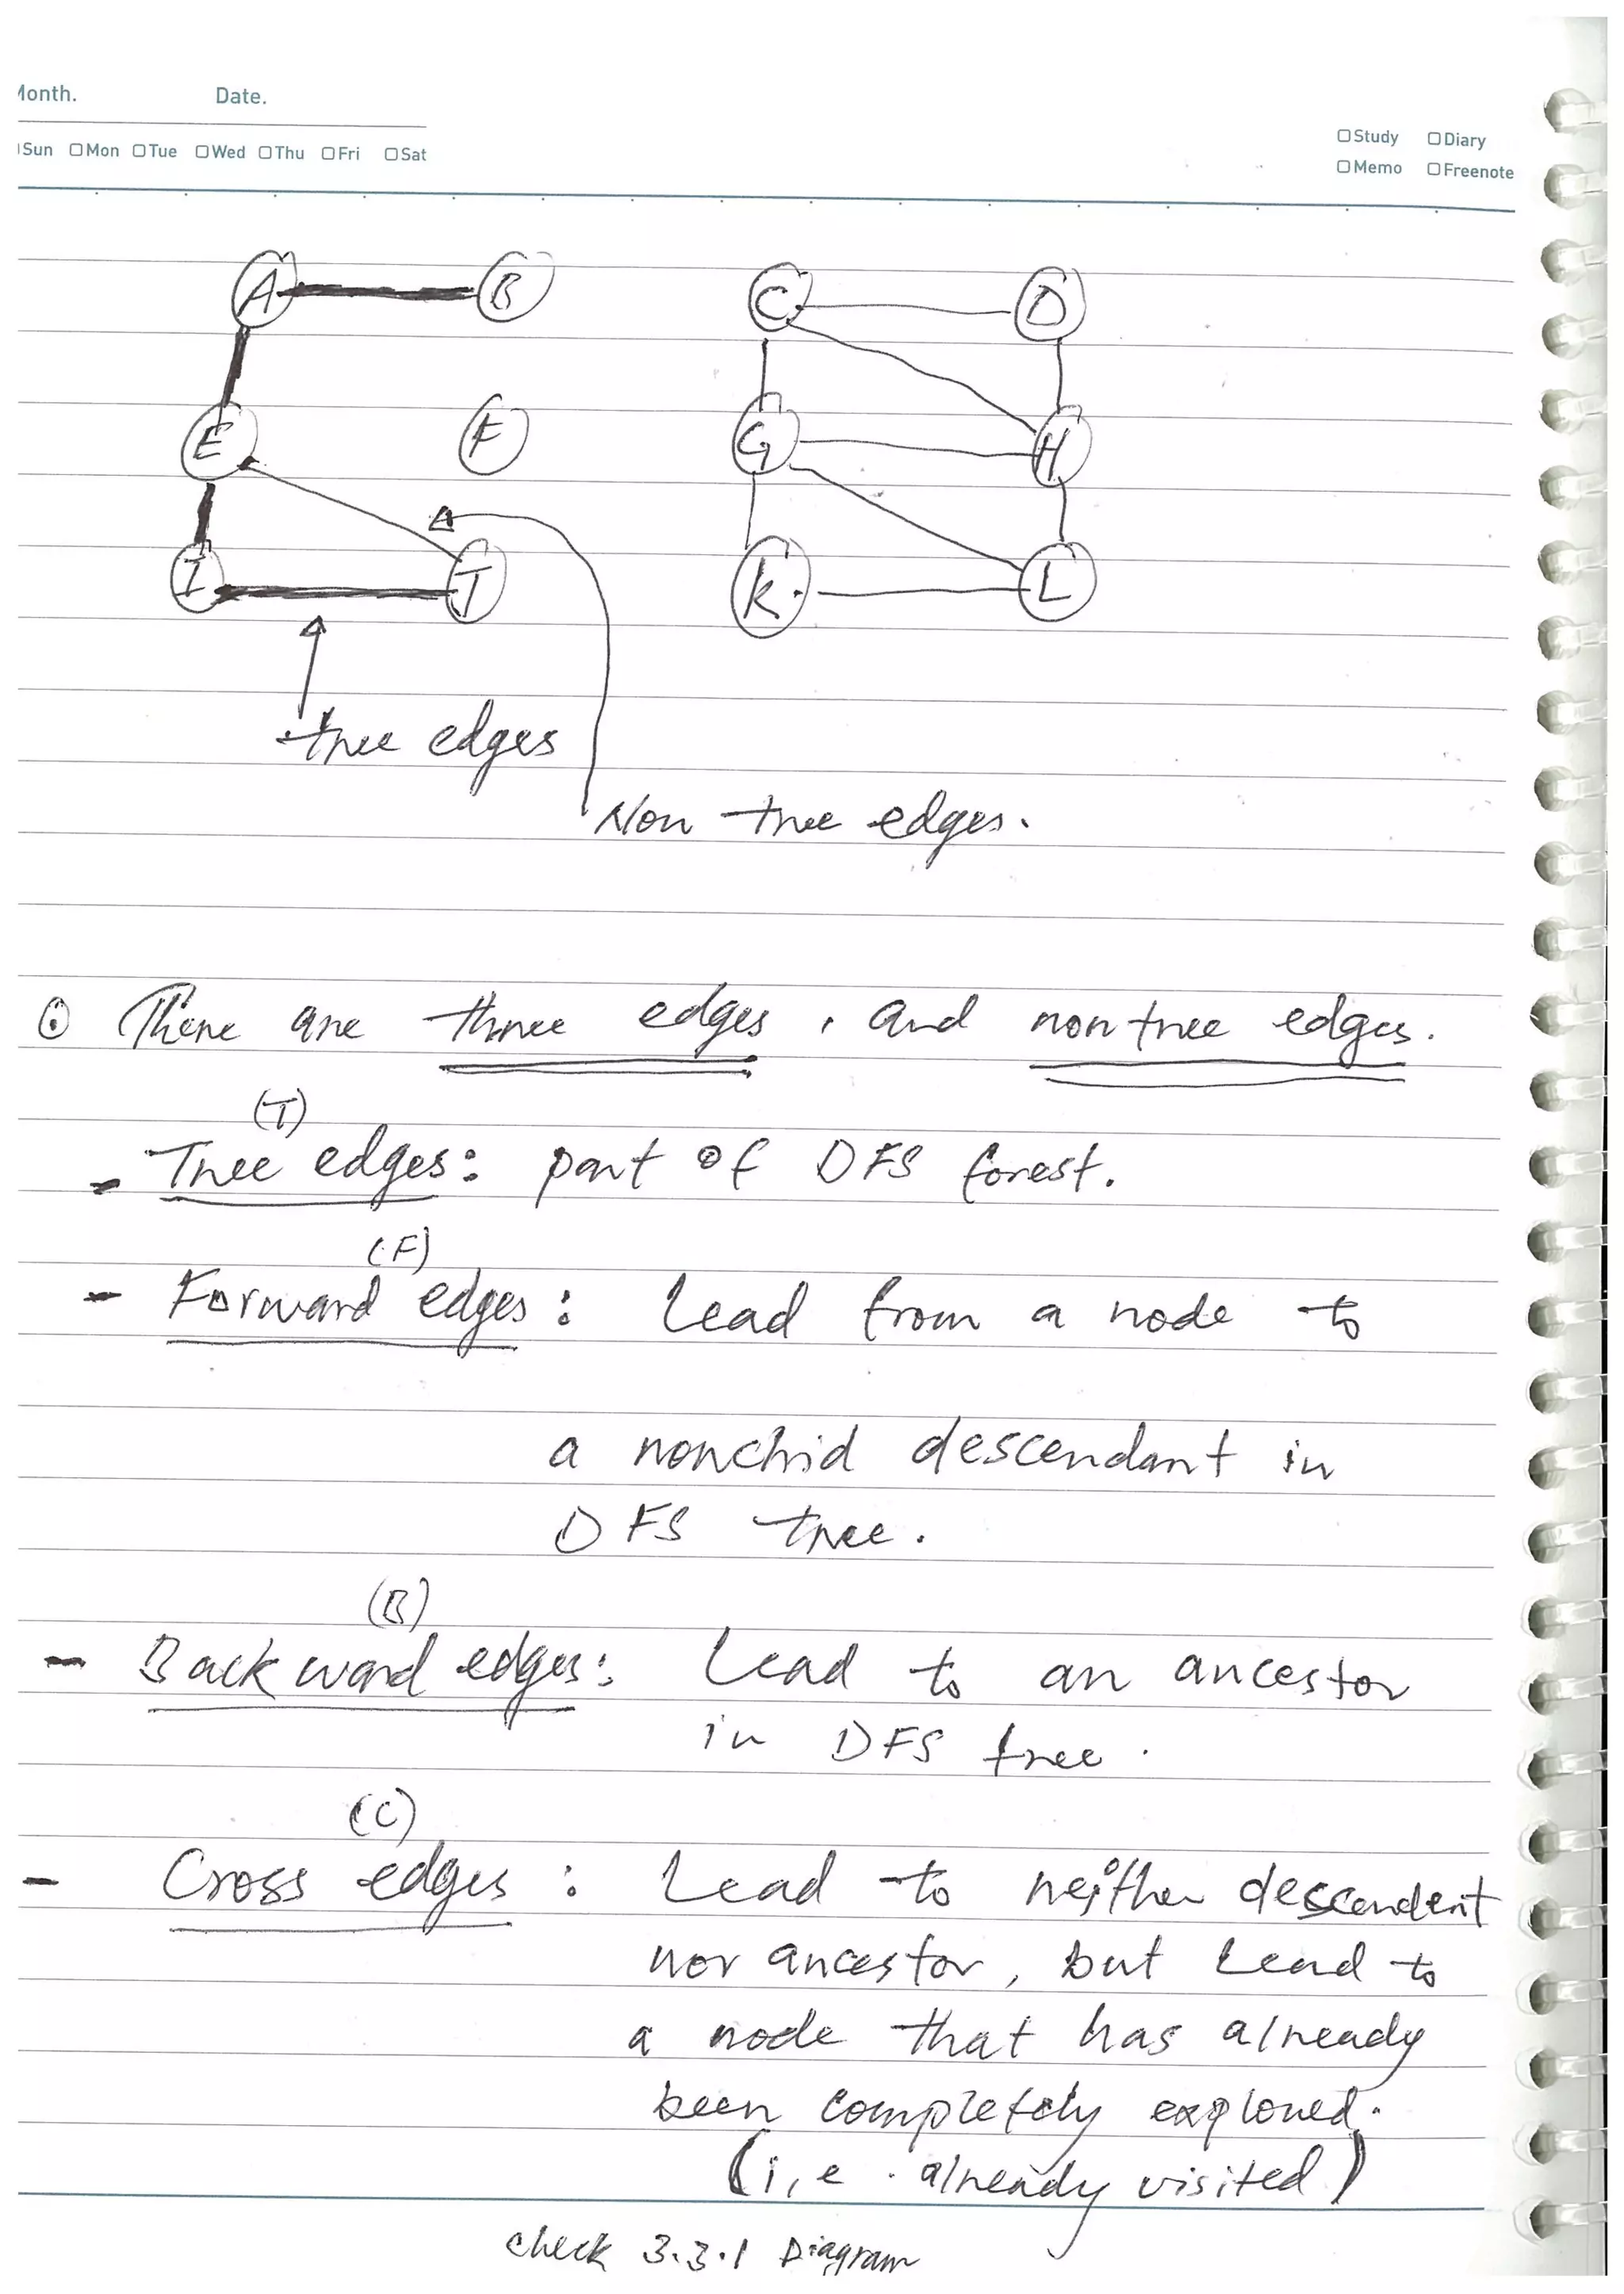 Month. Date.
Sun Mon Tue Wed Thu Fri Sat
Study Diary
Memo Freenote
A B C D
E F G H
I J K L
tree edges
Non tree edges.
There are three edges, and non tree edges.
(T)
- Tree edges: part of DFS forest.
(F)
- Forward edges: Lead from a node to
a nonchid descendant in
DFS tree.
(B)
- Backward edges: Lead to an ancestor
in DFS tree.
(C)
- Cross edges: Lead to neither descendent
nor ancestor, but Lead to
a node that has already
been completely explored.
(i,e. already visited)
check 3.3.1 Diagram